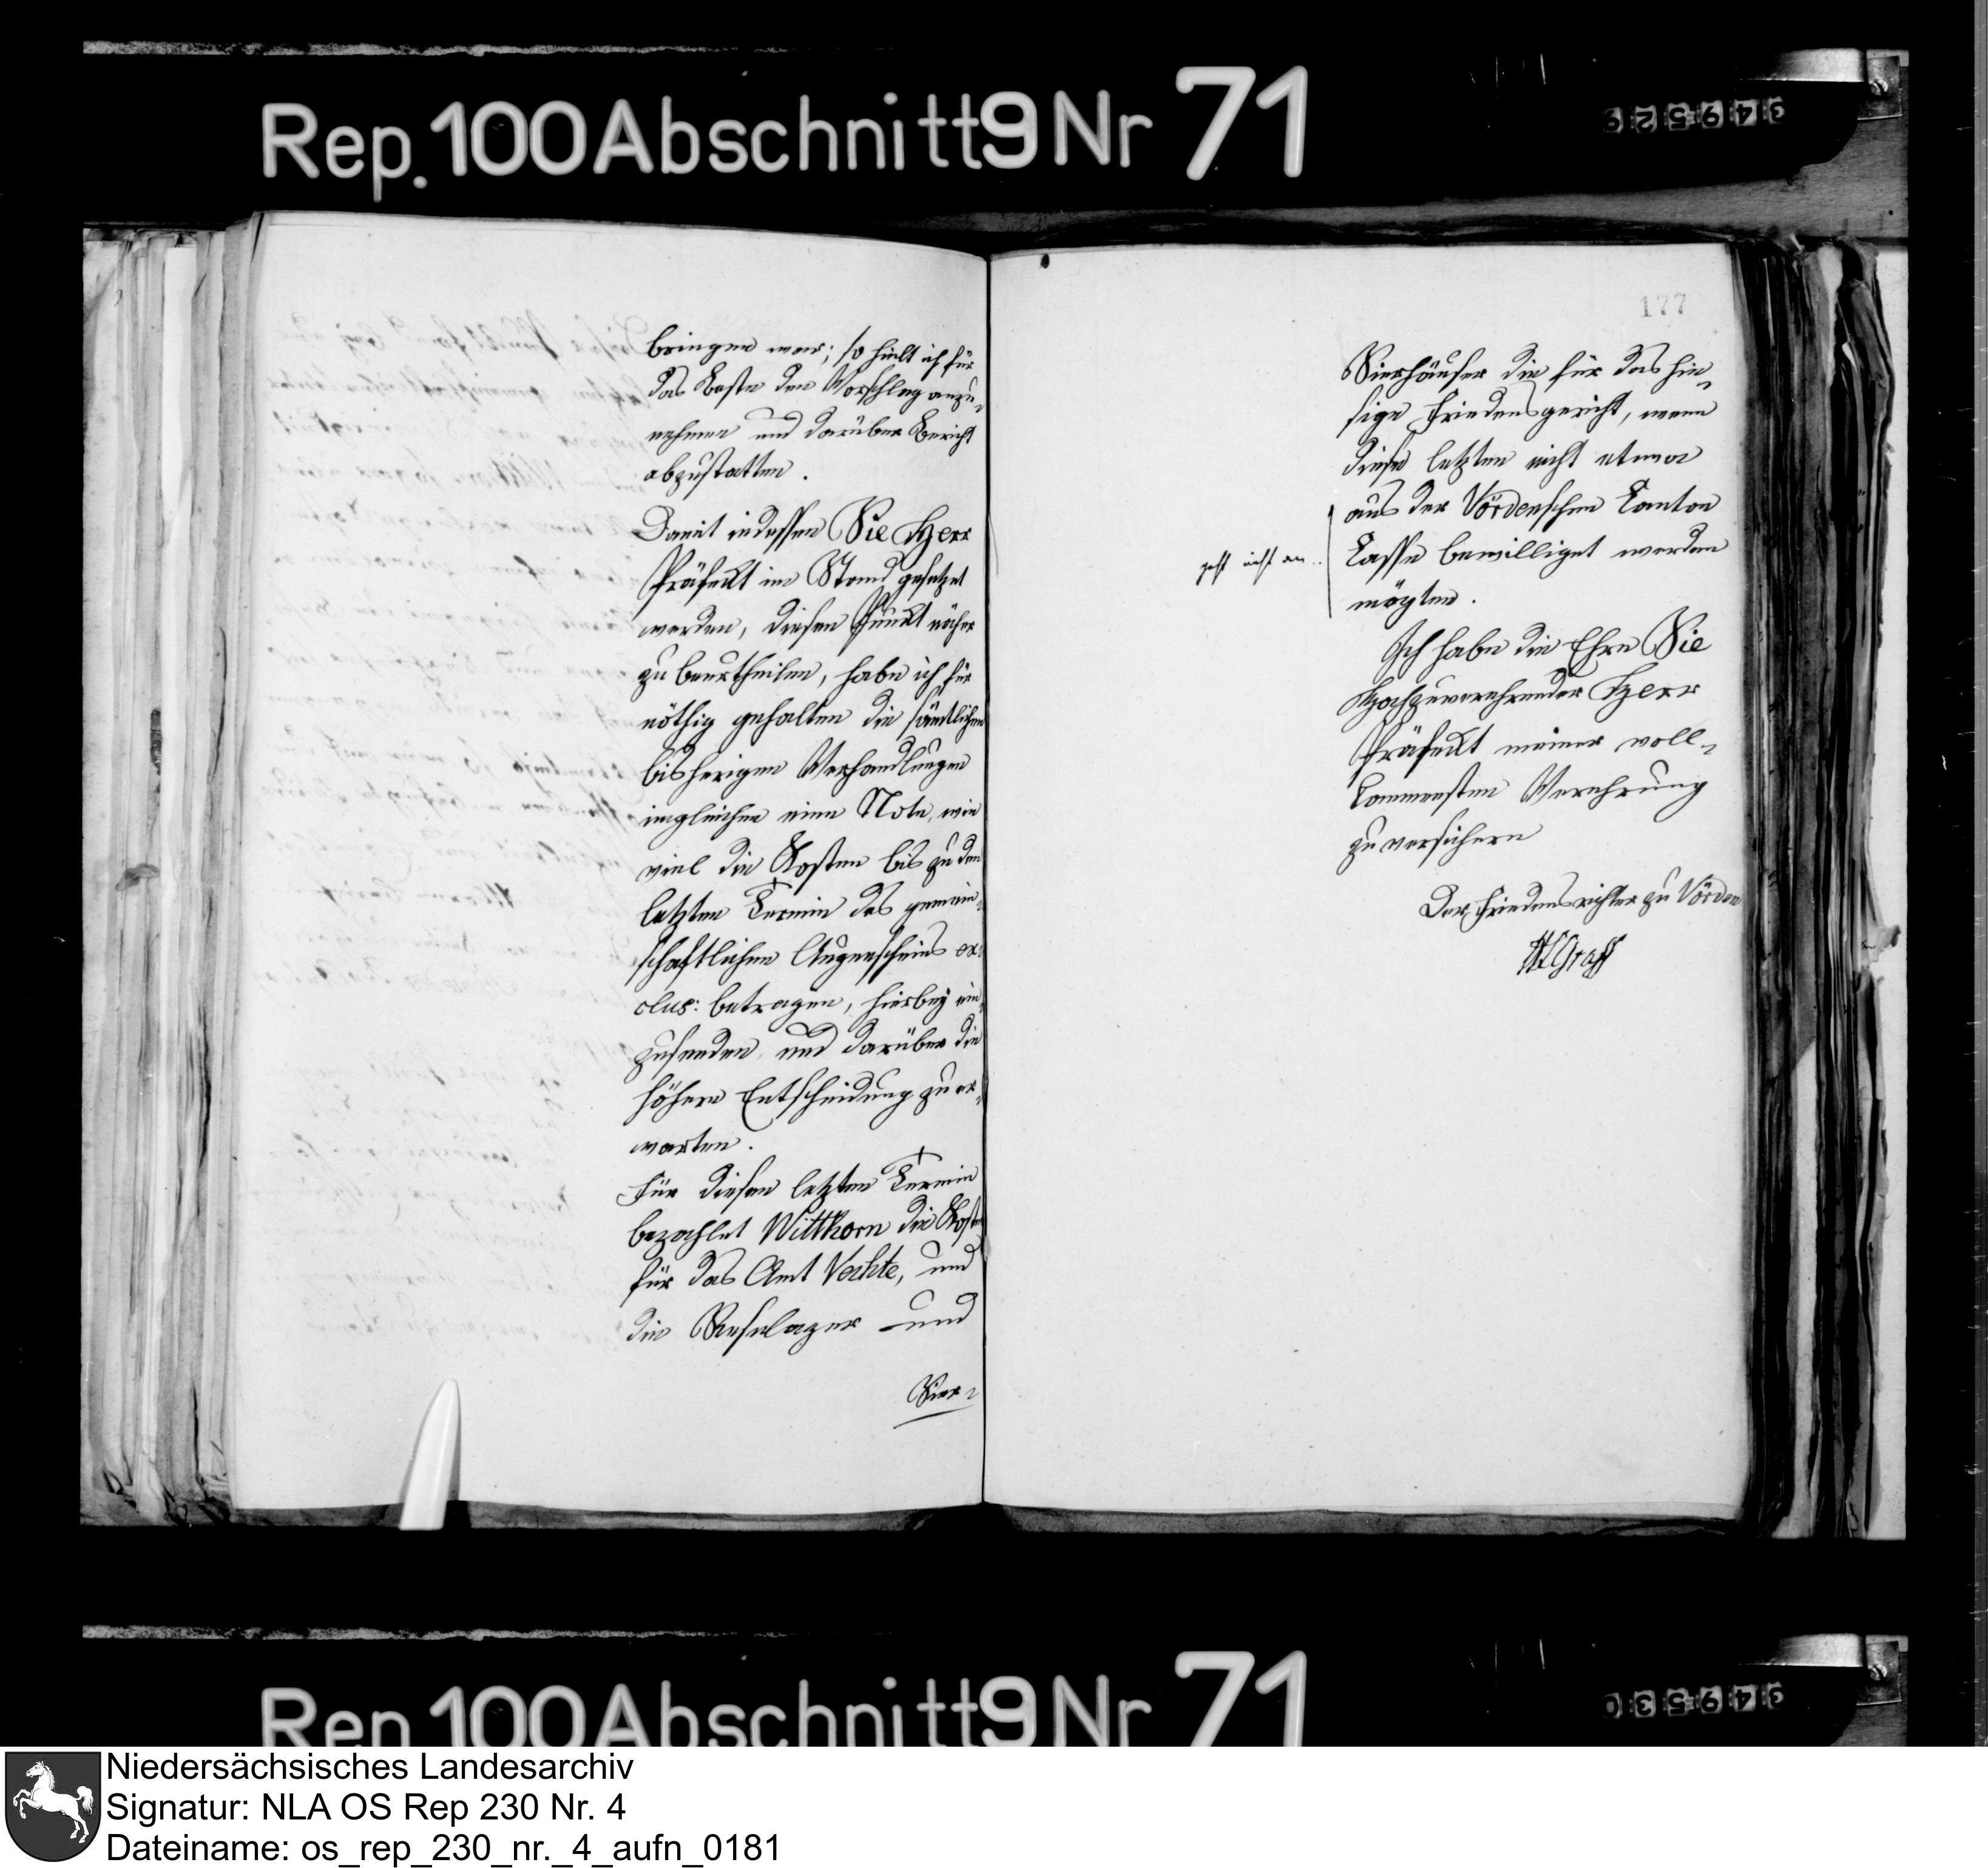 Rep. 100 Abschnitt 9 Nr 71
349529
bringen war; so hielt ich für
das Beste den Vorschlag anzu-
nehmen und darüber Bericht
abzustatten.
Damit indessen Sie Herr
Präfekt im Stand gesetzet
werden, diesen Punkt näher
zu beurtheilen, habe ich für
nöthig gehalten die sämtlichen
bisherigen Verhandlungen
imgleichen eine Note, wie
viel die Kosten bis zu dem
letzten Termin des gemein-
schaftlichen Augenscheins ex-
clus: betragen, hierbey ein-
zusenden und darüber die
höhere Entscheidung zu er-
warten.
Für diesen letzten Termin
bezahlet Witthorn die Kosten
für das Amt Vechte, und
die Reselager und
Vier-
177
Vierhäuser die für das hie-
sige Friedensgericht, wenn
diese letzten nicht etwa
aus der Vördenschen Canton
Casse bewilliget werden
mögten.
geht nicht an..
Ich habe die Ehre Sie
Hochzuverehrender Herr
Präfekt meiner voll-
kommensten Verehrung
zu versichern
Der Friedensrichter zu Vörden
Graff
Rep. 100 Abschnitt 9 Nr 71
349530
Niedersächsisches Landesarchiv
Signatur: NLA OS Rep 230 Nr. 4
Dateiname: os_rep_230_nr._4_aufn_0181